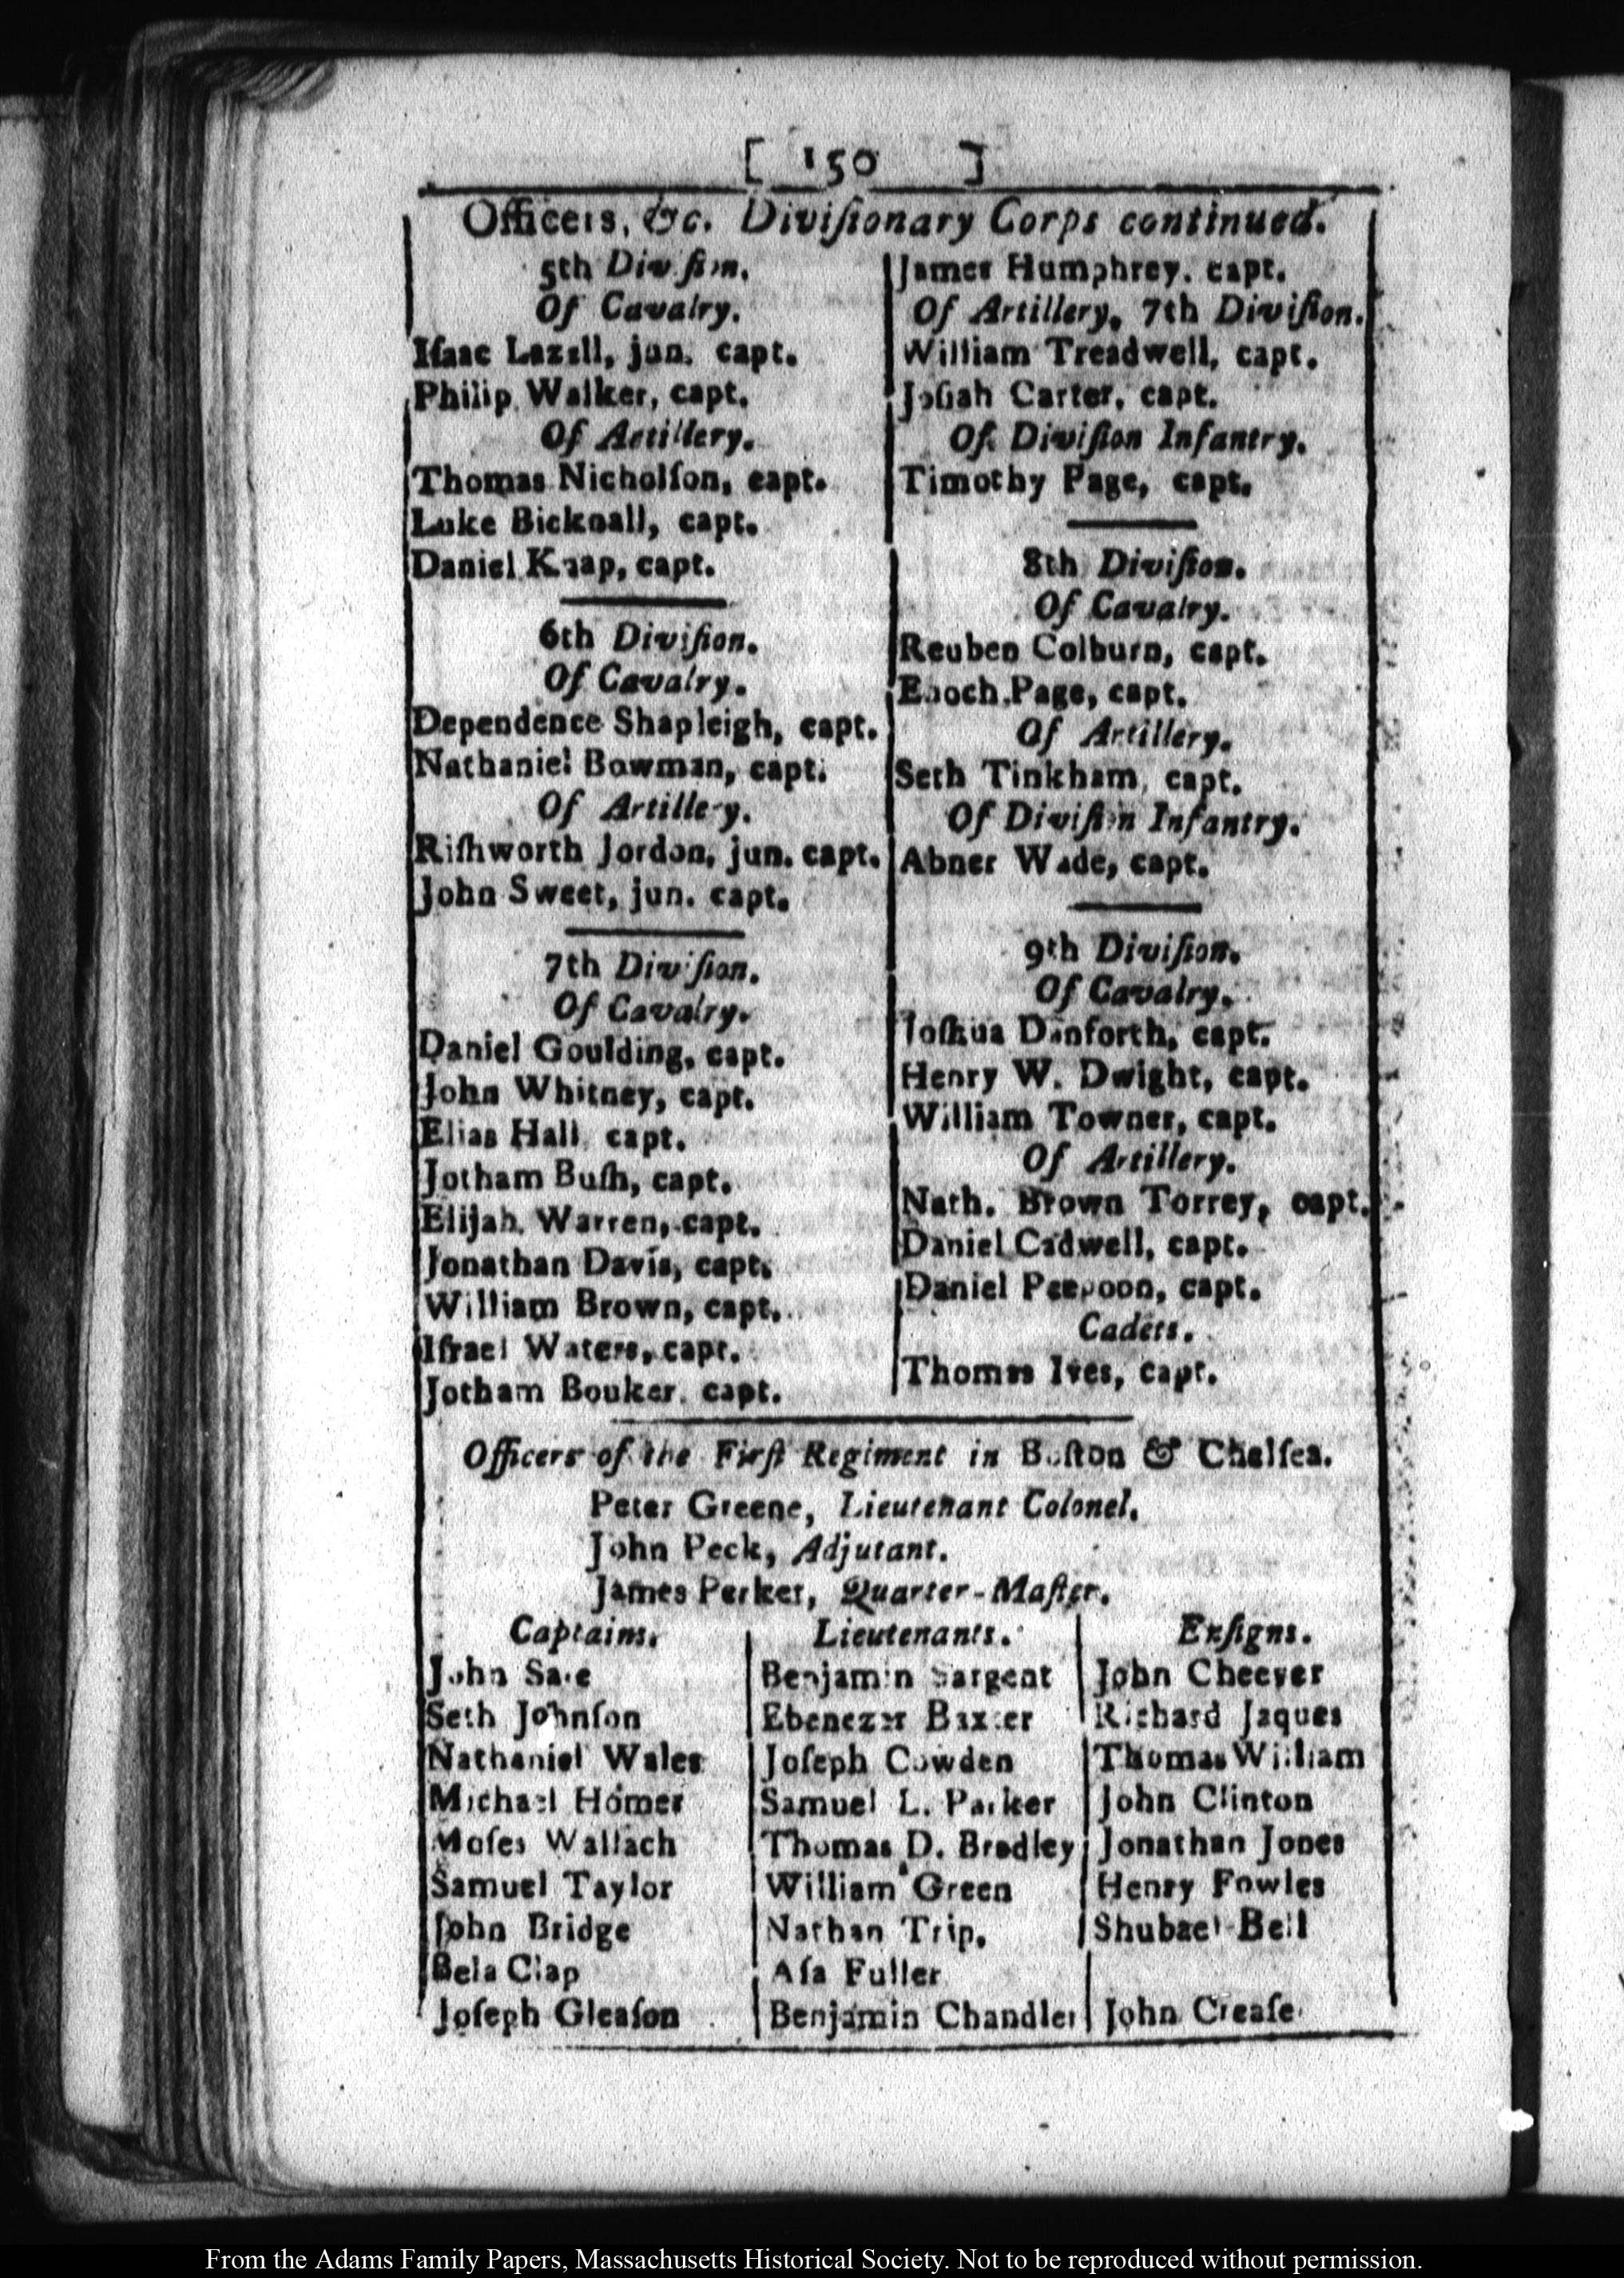 [ 150 ]
Officers, &c. Diviſionary Corps continued.
5th Diviſion.
Of Cavalry.
Iſaac Lazell, jun. capt.
Philip Walker, capt.
Of Artillery.
Thomas Nicholſon, capt.
Luke Bicknall, capt.
Daniel Knap, capt.
6th Diviſion.
Of Cavalry.
Dependence Shapleigh, capt.
Nathaniel Bowman, capt.
Of Artillery.
Riſhworth Jordon, jun. capt.
John Sweet, jun. capt.
7th Diviſion.
Of Cavalry.
Daniel Goulding, capt.
John Whitney, capt.
Elias Hall, capt.
Jotham Buſh, capt.
Elijah Warren, capt.
Jonathan Davis, capt.
William Brown, capt.
Iſrael Waters, capt.
Jotham Bouker, capt.
James Humphrey, capt.
Of Artillery, 7th Diviſion.
William Treadwell, capt.
Joſiah Carter, capt.
Of Diviſion Infantry.
Timothy Page, capt.
8th Diviſion.
Of Cavalry.
Reuben Colburn, capt.
Enoch Page, capt.
Of Artillery.
Seth Tinkham, capt.
Of Diviſion Infantry.
Abner Wade, capt.
9th Diviſion.
Of Cavalry.
Joſhua Danforth, capt.
Henry W. Dwight, capt.
William Towner, capt.
Of Artillery.
Nath. Brown Torrey, capt.
Daniel Cadwell, capt.
Daniel Peepoon, capt.
Cadets.
Thomas Ives, capt.
Officers of the Firſt Regiment in Boſton & Chelſea.
Peter Greene, Lieutenant Colonel.
John Peck, Adjutant.
James Perker, Quarter-Maſter.
Captains. Lieutenants. Enſigns.
John Sale Benjamin Sargent John Cheever
Seth Johnſon Ebenezer Baxter Richard Jaques
Nathaniel Wales Joſeph Cowden Thomas William
Michael Homer Samuel L. Parker John Clinton
Moſes Wallach Thomas D. Bradley Jonathan Jones
Samuel Taylor William Green Henry Fowles
John Bridge Nathan Trip. Shubael Bell
Bela Clap Aſa Fuller
Joſeph Gleaſon Benjamin Chandler John Creaſe
From the Adams Family Papers, Massachusetts Historical Society. Not to be reproduced without permission.